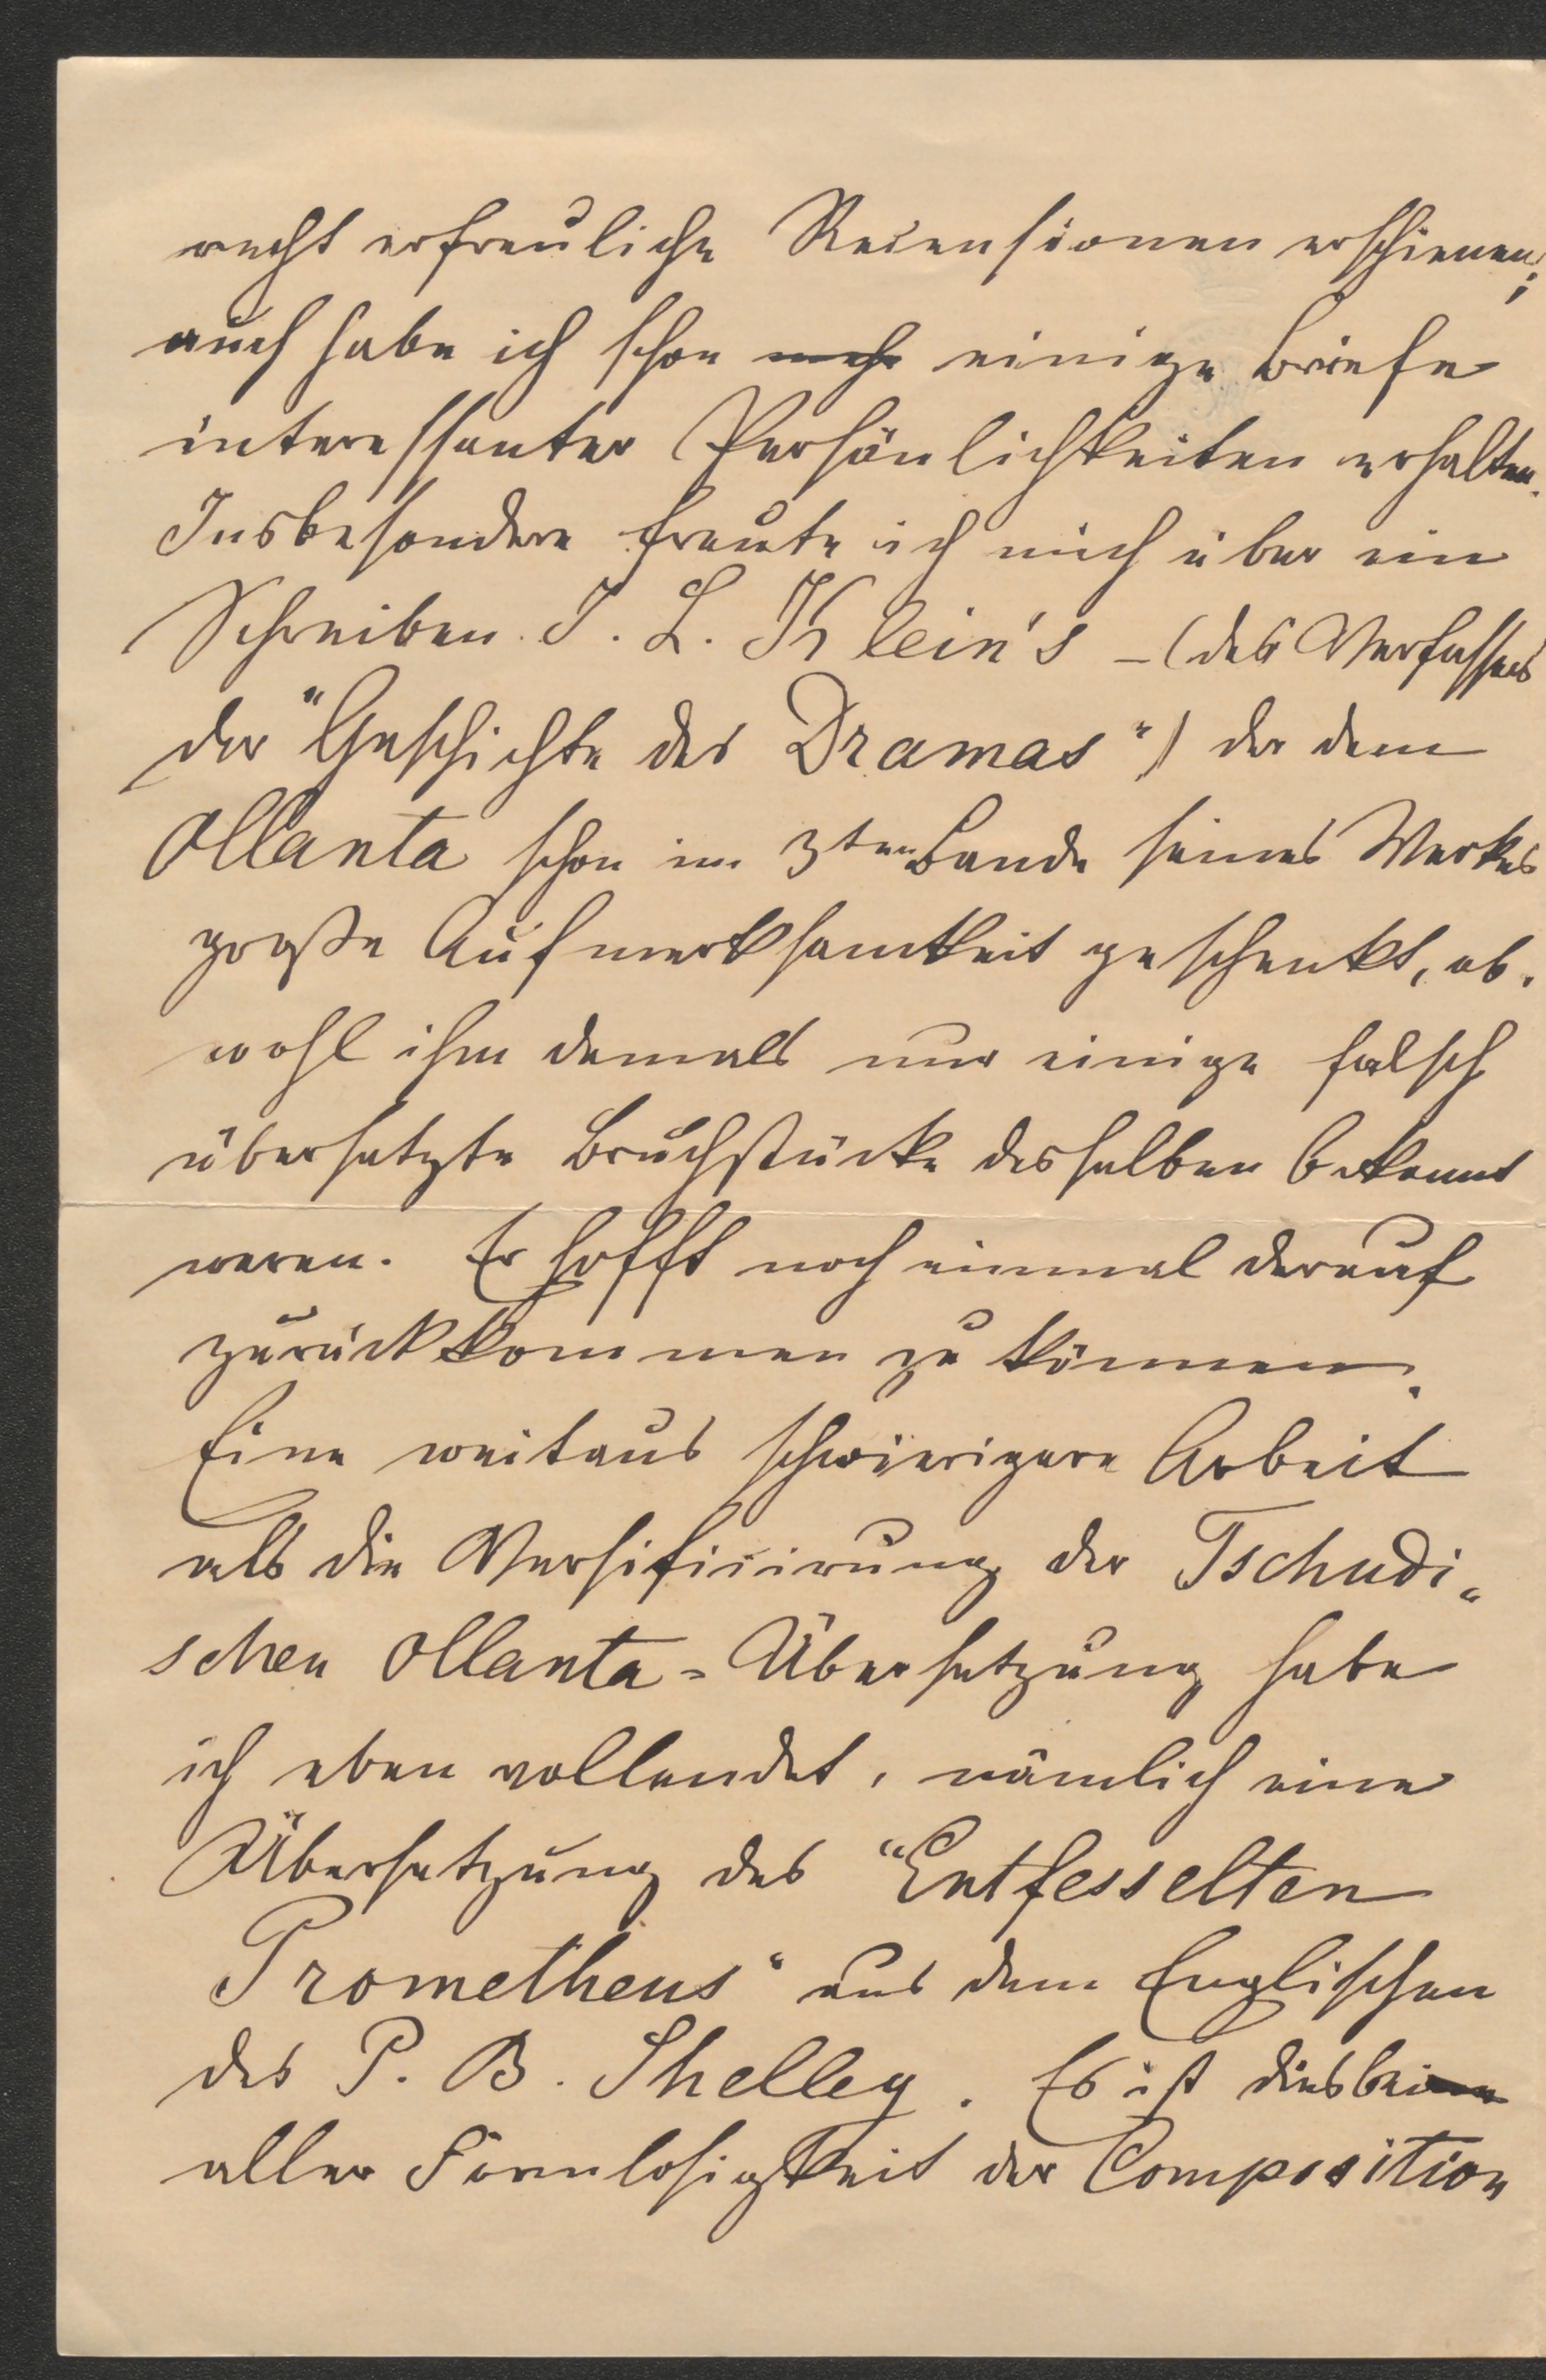 recht erfreuliche Recensionen erschienen;
auch habe ich schon mehr einige Briefe
interessanter Persönlichkeiten erhalten.
Insbesondere freute ich mich über ein
Schreiben J. L. Klein's – (des Verfassers
der "Geschichte des Dramas") der dem
Ollanta schon im 3ten Bande seines Werkes
große Aufmerksamkeit geschenkt, ob-
wohl ihm damals nur einige falsch
übersetzte Bruchstücke desselben bekannt
waren. Er hofft noch einmal darauf
zurückkommen zu können.
Eine weitaus schwierigere Arbeit
als die Versificirung der Tschudi-
schen Ollanta-Übersetzung habe
ich eben vollendet, nämlich eine
Übersetzung des "Entfesselten
Prometheus" aus dem Englischen
des P. B. Shelley. Es ist dies bei
aller Formlosigkeit der Composition